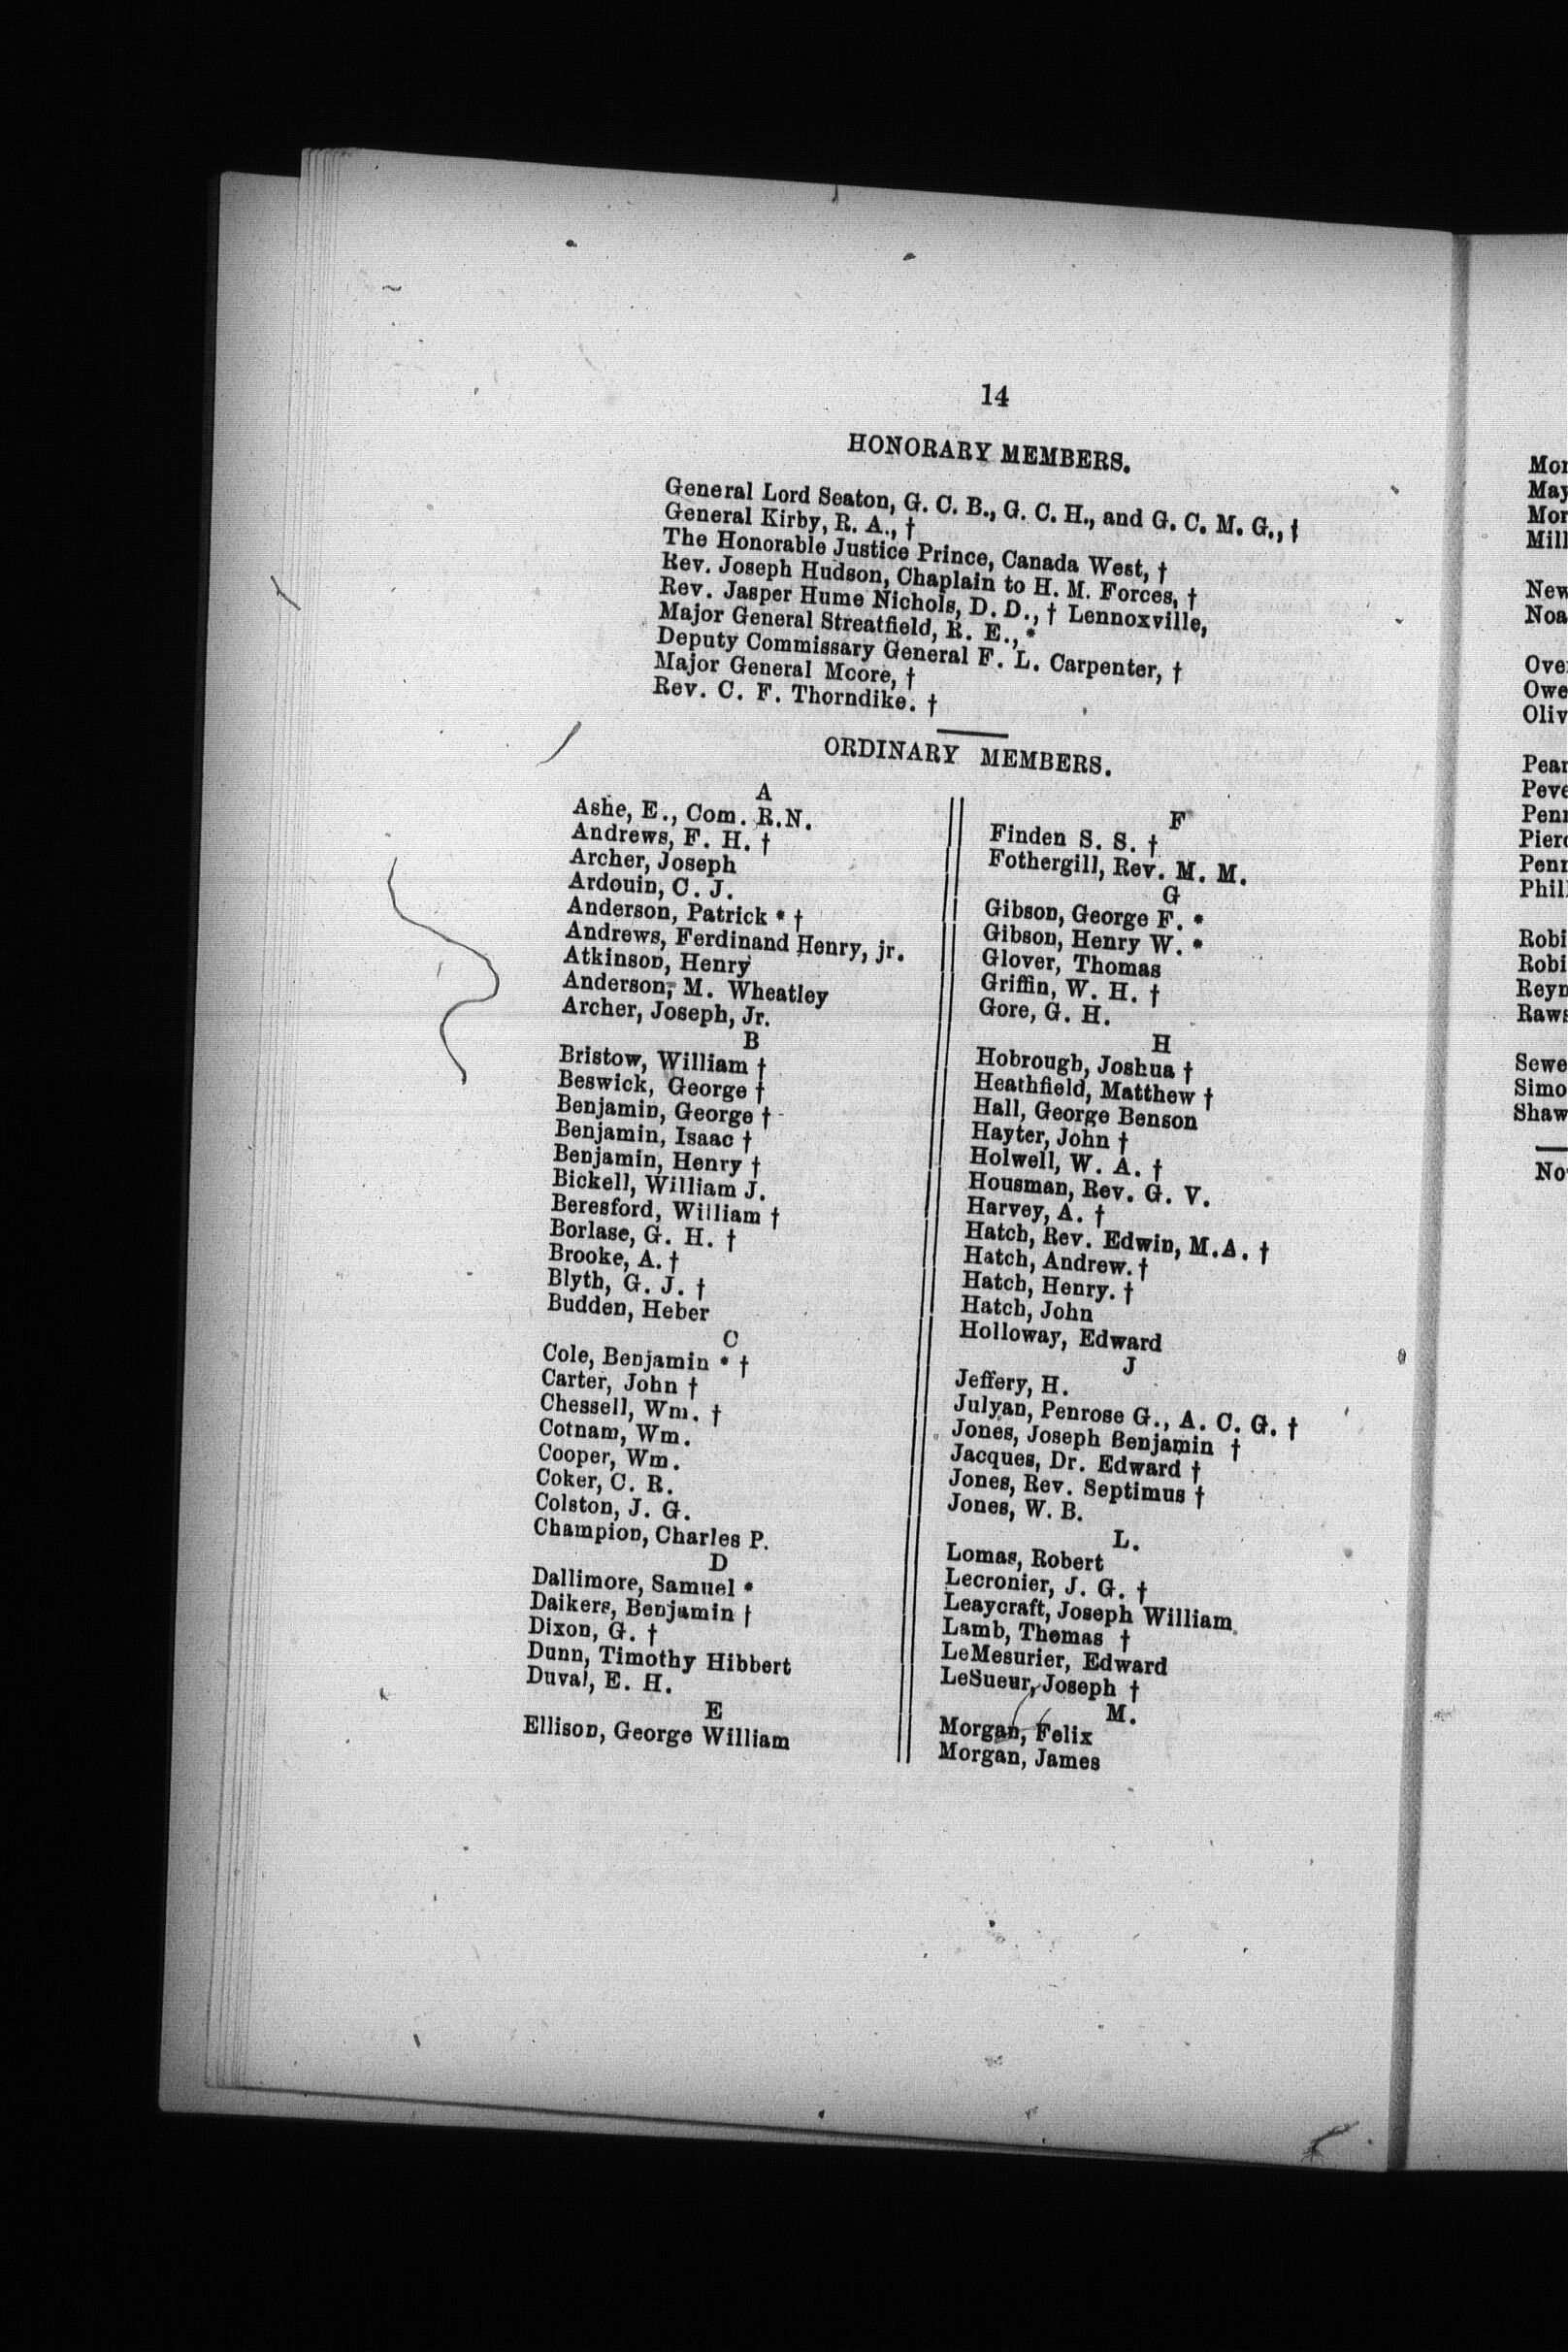 14
HONORARY MEMBERS.
General Lord Seaton, G. C. B., G. C. H., and G. C. M. G., †
General Kirby, R. A., †
The Honorable Justice Prince, Canada West, †
Rev. Joseph Hudson, Chaplain to H. M. Forces, †
Rev. Jasper Hume Nichols, D. D., † Lennoxville,
Major General Streatfield, R. E., *
Deputy Commissary General F. L. Carpenter, †
Major General Moore, †
Rev. C. F. Thorndike. †
ORDINARY MEMBERS.
A
Ashe, E., Com. R.N.
Andrews, F. H. †
Archer, Joseph
Ardouin, C. J.
Anderson, Patrick * †
Andrews, Ferdinand Henry, jr.
Atkinson, Henry
Anderson, M. Wheatley
Archer, Joseph, Jr.
B
Bristow, William †
Beswick, George †
Benjamin, George †
Benjamin, Isaac †
Benjamin, Henry †
Bickell, William J.
Beresford, William †
Borlase, G. H. †
Brooke, A. †
Blyth, G. J. †
Budden, Heber
C
Cole, Benjamin * †
Carter, John †
Chessell, Wm. †
Cotnam, Wm.
Cooper, Wm.
Coker, C. R.
Colston, J. G.
Champion, Charles P.
D
Dallimore, Samuel *
Daikers, Benjamin †
Dixon, G. †
Dunn, Timothy Hibbert
Duval, E. H.
E
Ellison, George William
F
Finden S. S. †
Fothergill, Rev. M. M.
G
Gibson, George F. *
Gibson, Henry W. *
Glover, Thomas
Griffin, W. H. †
Gore, G. H.
H
Hobrough, Joshua †
Heathfield, Matthew †
Hall, George Benson
Hayter, John †
Holwell, W. A. †
Housman, Rev. G. V.
Harvey, A. †
Hatch, Rev. Edwin, M.A. †
Hatch, Andrew. †
Hatch, Henry. †
Hatch, John
Holloway, Edward
J
Jeffery, H.
Julyan, Penrose G., A. C. G. †
Jones, Joseph Benjamin †
Jacques, Dr. Edward †
Jones, Rev. Septimus †
Jones, W. B.
L.
Lomas, Robert
Lecronier, J. G. †
Leaycraft, Joseph William
Lamb, Thomas †
LeMesurier, Edward
LeSueur, Joseph †
M.
Morgan, Felix
Morgan, James
Mor
May
Mor
Mill
New
Noa
Ove
Owe
Oliv
Pear
Peve
Penn
Pierc
Penn
Phil
Robi
Robi
Reyn
Raws
Sewe
Simo
Shaw
No